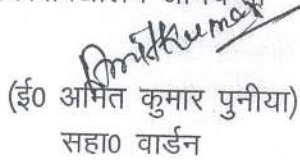 Amit Kumar
(ई0 अमित कुमार पुनीया)
सहा0 वार्डन